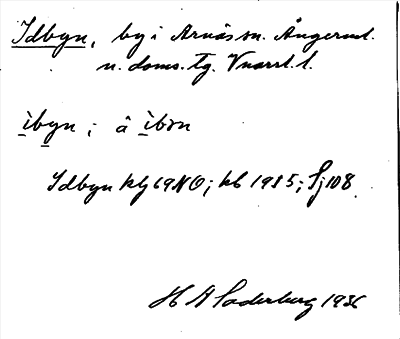 Idbyn, by i Arnäs sn. Ångerml.
n. doms. Tg. Vnorrl. l.
ìbyn; å ìbṃ
Idbyn kbg 69NO; kb 1915; Sj 108.
H A Söderberg 1936